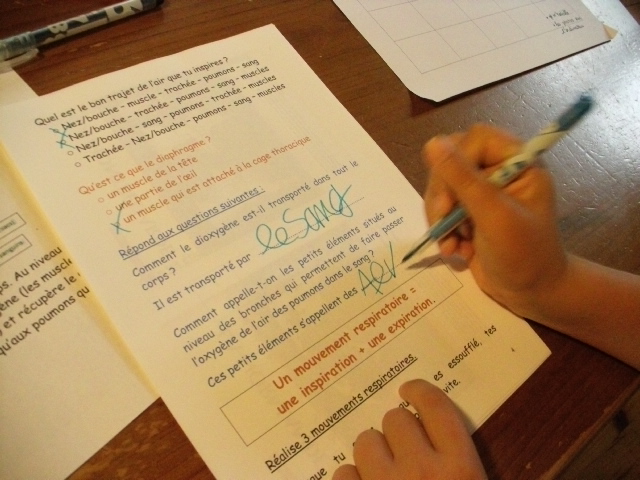 Quel est le bon trajet de l'air que tu inspires ?
Nez/bouche - muscle - trachée - poumons - sang
Nez/bouche - trachée - poumons - sang - muscles
Nez/bouche - sang - poumons - trachée - muscles
Trachée - Nez/bouche - poumons - sang - muscles
Qu'est ce que le diaphragme ?
un muscle de la tête
une partie de l'œil
un muscle qui est attaché à la cage thoracique
Répond aux questions suivantes :
Comment le dioxygène est-il transporté dans tout le
corps ?
Il est transporté par le sang
Comment appelle-t-on les petits éléments situés au
niveau des bronches qui permettent de faire passer
l'oxygène de l'air des poumons dans le sang ?
Ces petits éléments s'appellent des
Un mouvement respiratoire =
une inspiration + une expiration.
Réalise 3 mouvements respiratoires.
que tu es essoufflé, tes
vite.
ps. Au niveau
gène (les muscle
et récupère le
qu'aux poumons qu